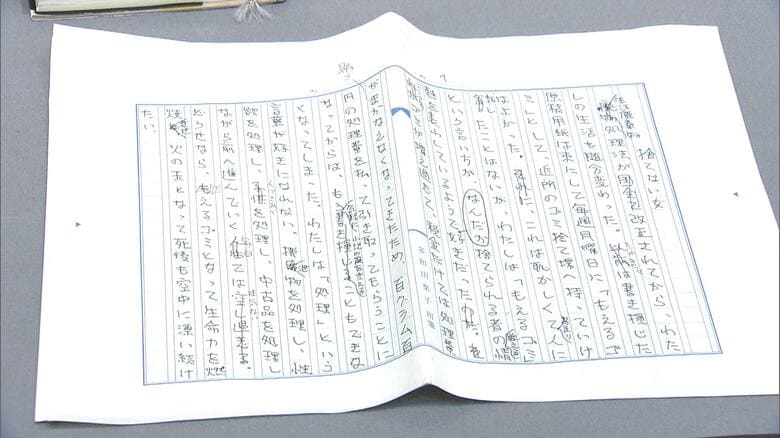 捨てない女
生活廃棄物処理法が国会で改正されてから、わた
しの生活も随分変わった。は書き損じた
原稿用紙は束にして毎週月曜日に「もえるゴ
ミ」として、近所のゴミ捨て場へ持っていけ
ばよかった。それに、これは恥かしくて人に
したことはないが、わたしは「もえるゴミ」
という言い方が、なんだか捨てられる者の情
を表わしているようで好きだった。
が増え過ぎて、税金だけでは処理費
多和田葉子用箋
がまかなえなくなってきたため、百グラム百
円の処理費を払って引き取ってもらうことに
なってからは、もう書き損じることもできな
くなってしまった。わたしは「処理」という
言葉が好きになれない。排泄物を処理し、性
欲を処理し、死体を処理し、中古品を処理し
ながら前へ進んでいく
どうせなら、もえるゴミとなって生命力を燃
焼させ、火の玉となって死後も空中に漂い続け
たい。